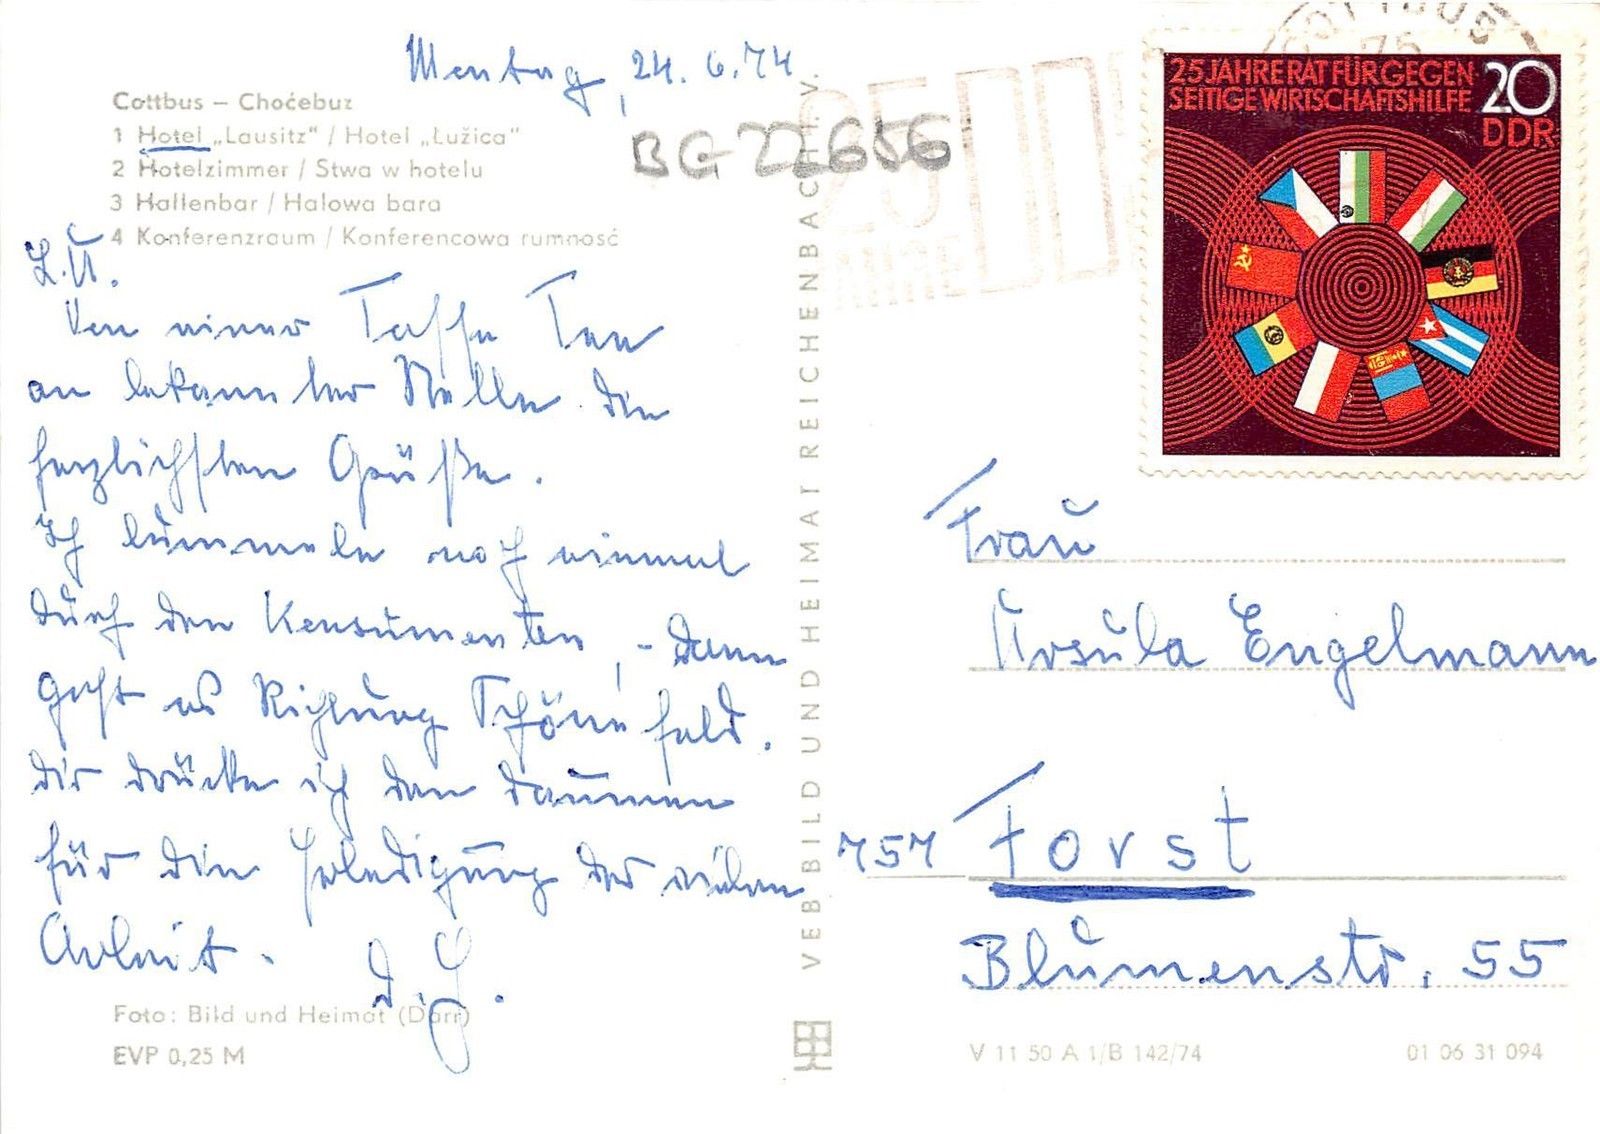 Montag, 24.6.74
Cottbus – Choćebuz
1 Hotel „Lausitz“ / Hotel „Łužica“
2 Hotelzimmer / Stwa w hotelu
3 Hallenbar / Halowa bara
4 Konferenzraum / Konferencowa rumnosć
BG 22656
L.U.
Von einer Tasse Tee
an bekannter Stelle die
herzlichsten Grüße.
Ich bummele noch einmal
durch den Konsumenten, - dann
geht es Richtung Schönefeld.
Dir drücke ich den Daumen
für die Erledigung der vielen
Arbeit.
D.H.
Foto: Bild und Heimat (Dörr)
EVP 0,25 M
VEB BILD UND HEIMAT REICHENBACH I. V.
25
JAHRE
COTTBUS
75
25 JAHRE RAT FÜR GEGEN
SEITIGE WIRTSCHAFTSHILFE
20
DDR
Frau
Ursula Engelmann
757 Forst
Blumenstr. 55
V 11 50 A 1/B 142/74
01 06 31 094